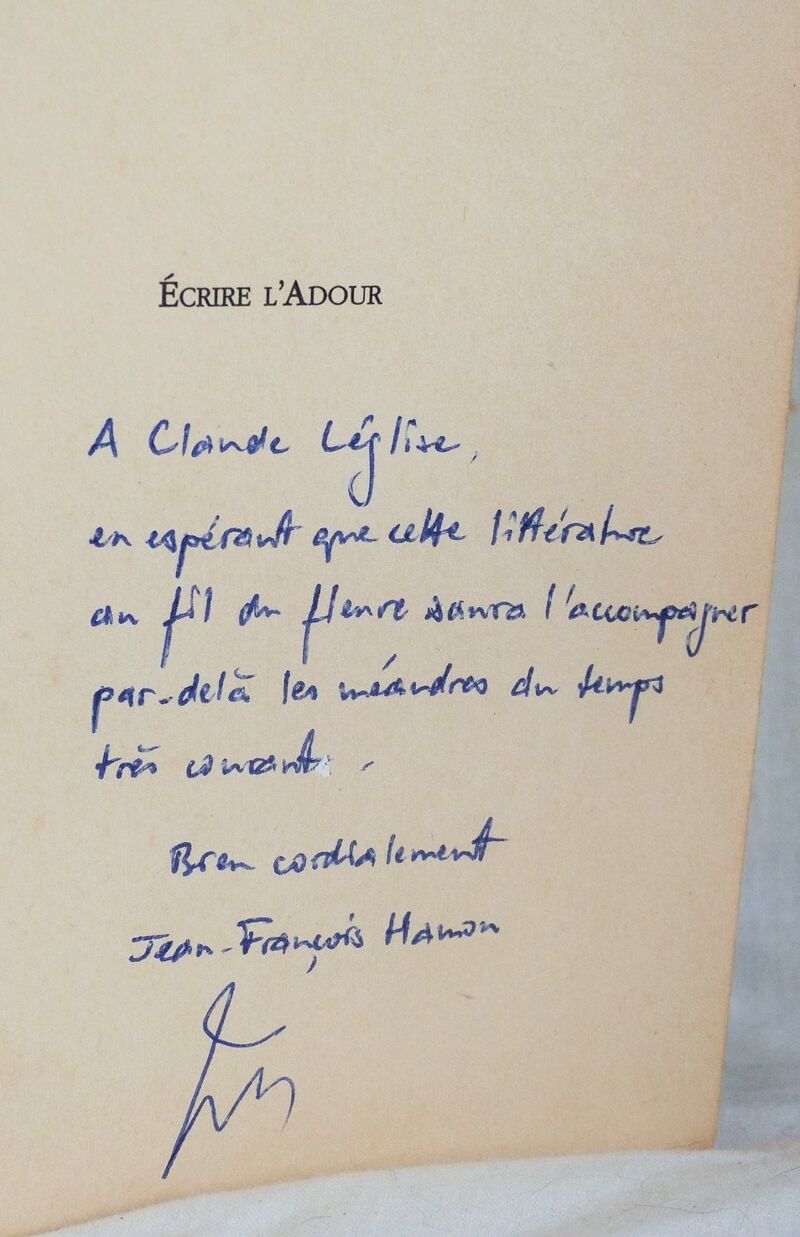 ÉCRIRE L'ADOUR
A Claude Léglise,
en espérant que cette littérature
au fil du fleuve saura l'accompagner
par-delà les méandres du temps
très courant.
Bien cordialement
Jean-François Hamon